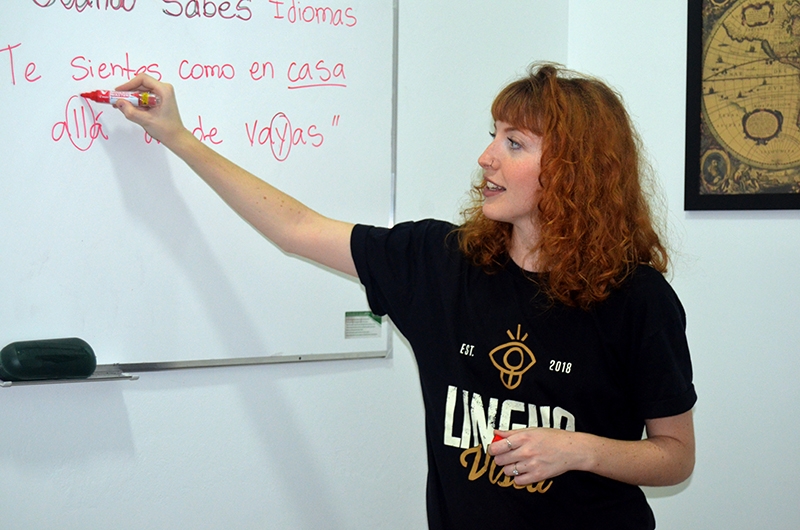 Cuando Sabes Idiomas
Te sientes como en casa
allá donde vayas"
EST. 2018
LINGUO
Visea